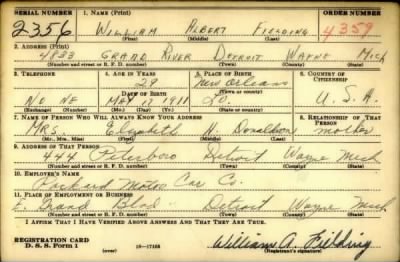 SERIAL NUMBER 1. NAME (Print) ORDER NUMBER
2356 WILLIAM ALBERT FIELDING 4359
(First) (Middle) (Last)
2. ADDRESS (Print)
4833 GRAND RIVER DETROIT WAYNE MICH
(Number and street or R. F. D. number) (Town) (County) (State)
3. TELEPHONE 4. AGE IN YEARS 5. PLACE OF BIRTH 6. COUNTRY OF CITIZENSHIP
29 New Orleans
DATE OF BIRTH (Town or county)
NONE MAY 17 1911 LO. U.S.A.
(Exchange) (Number) (Mo.) (Day) (Yr.) (State or country)
7. NAME OF PERSON WHO WILL ALWAYS KNOW YOUR ADDRESS 8. RELATIONSHIP OF THAT PERSON
Mrs. Elizabeth N. Donaldson mother
(Mr., Mrs., Miss) (First) (Middle) (Last)
9. ADDRESS OF THAT PERSON
444 Peterboro Detroit Wayne Mich
(Number and street or R. F. D. number) (Town) (County) (State)
10. EMPLOYER'S NAME
Packard Motor Car Co.
11. PLACE OF EMPLOYMENT OR BUSINESS
E. Grand Blvd - Detroit Wayne Mich
(Number and street or R. F. D. number) (Town) (County) (State)
I AFFIRM THAT I HAVE VERIFIED ABOVE ANSWERS AND THAT THEY ARE TRUE.
REGISTRATION CARD
D. S. S. Form 1 (over) 16—17105 William A. Fielding
(Registrant's signature)